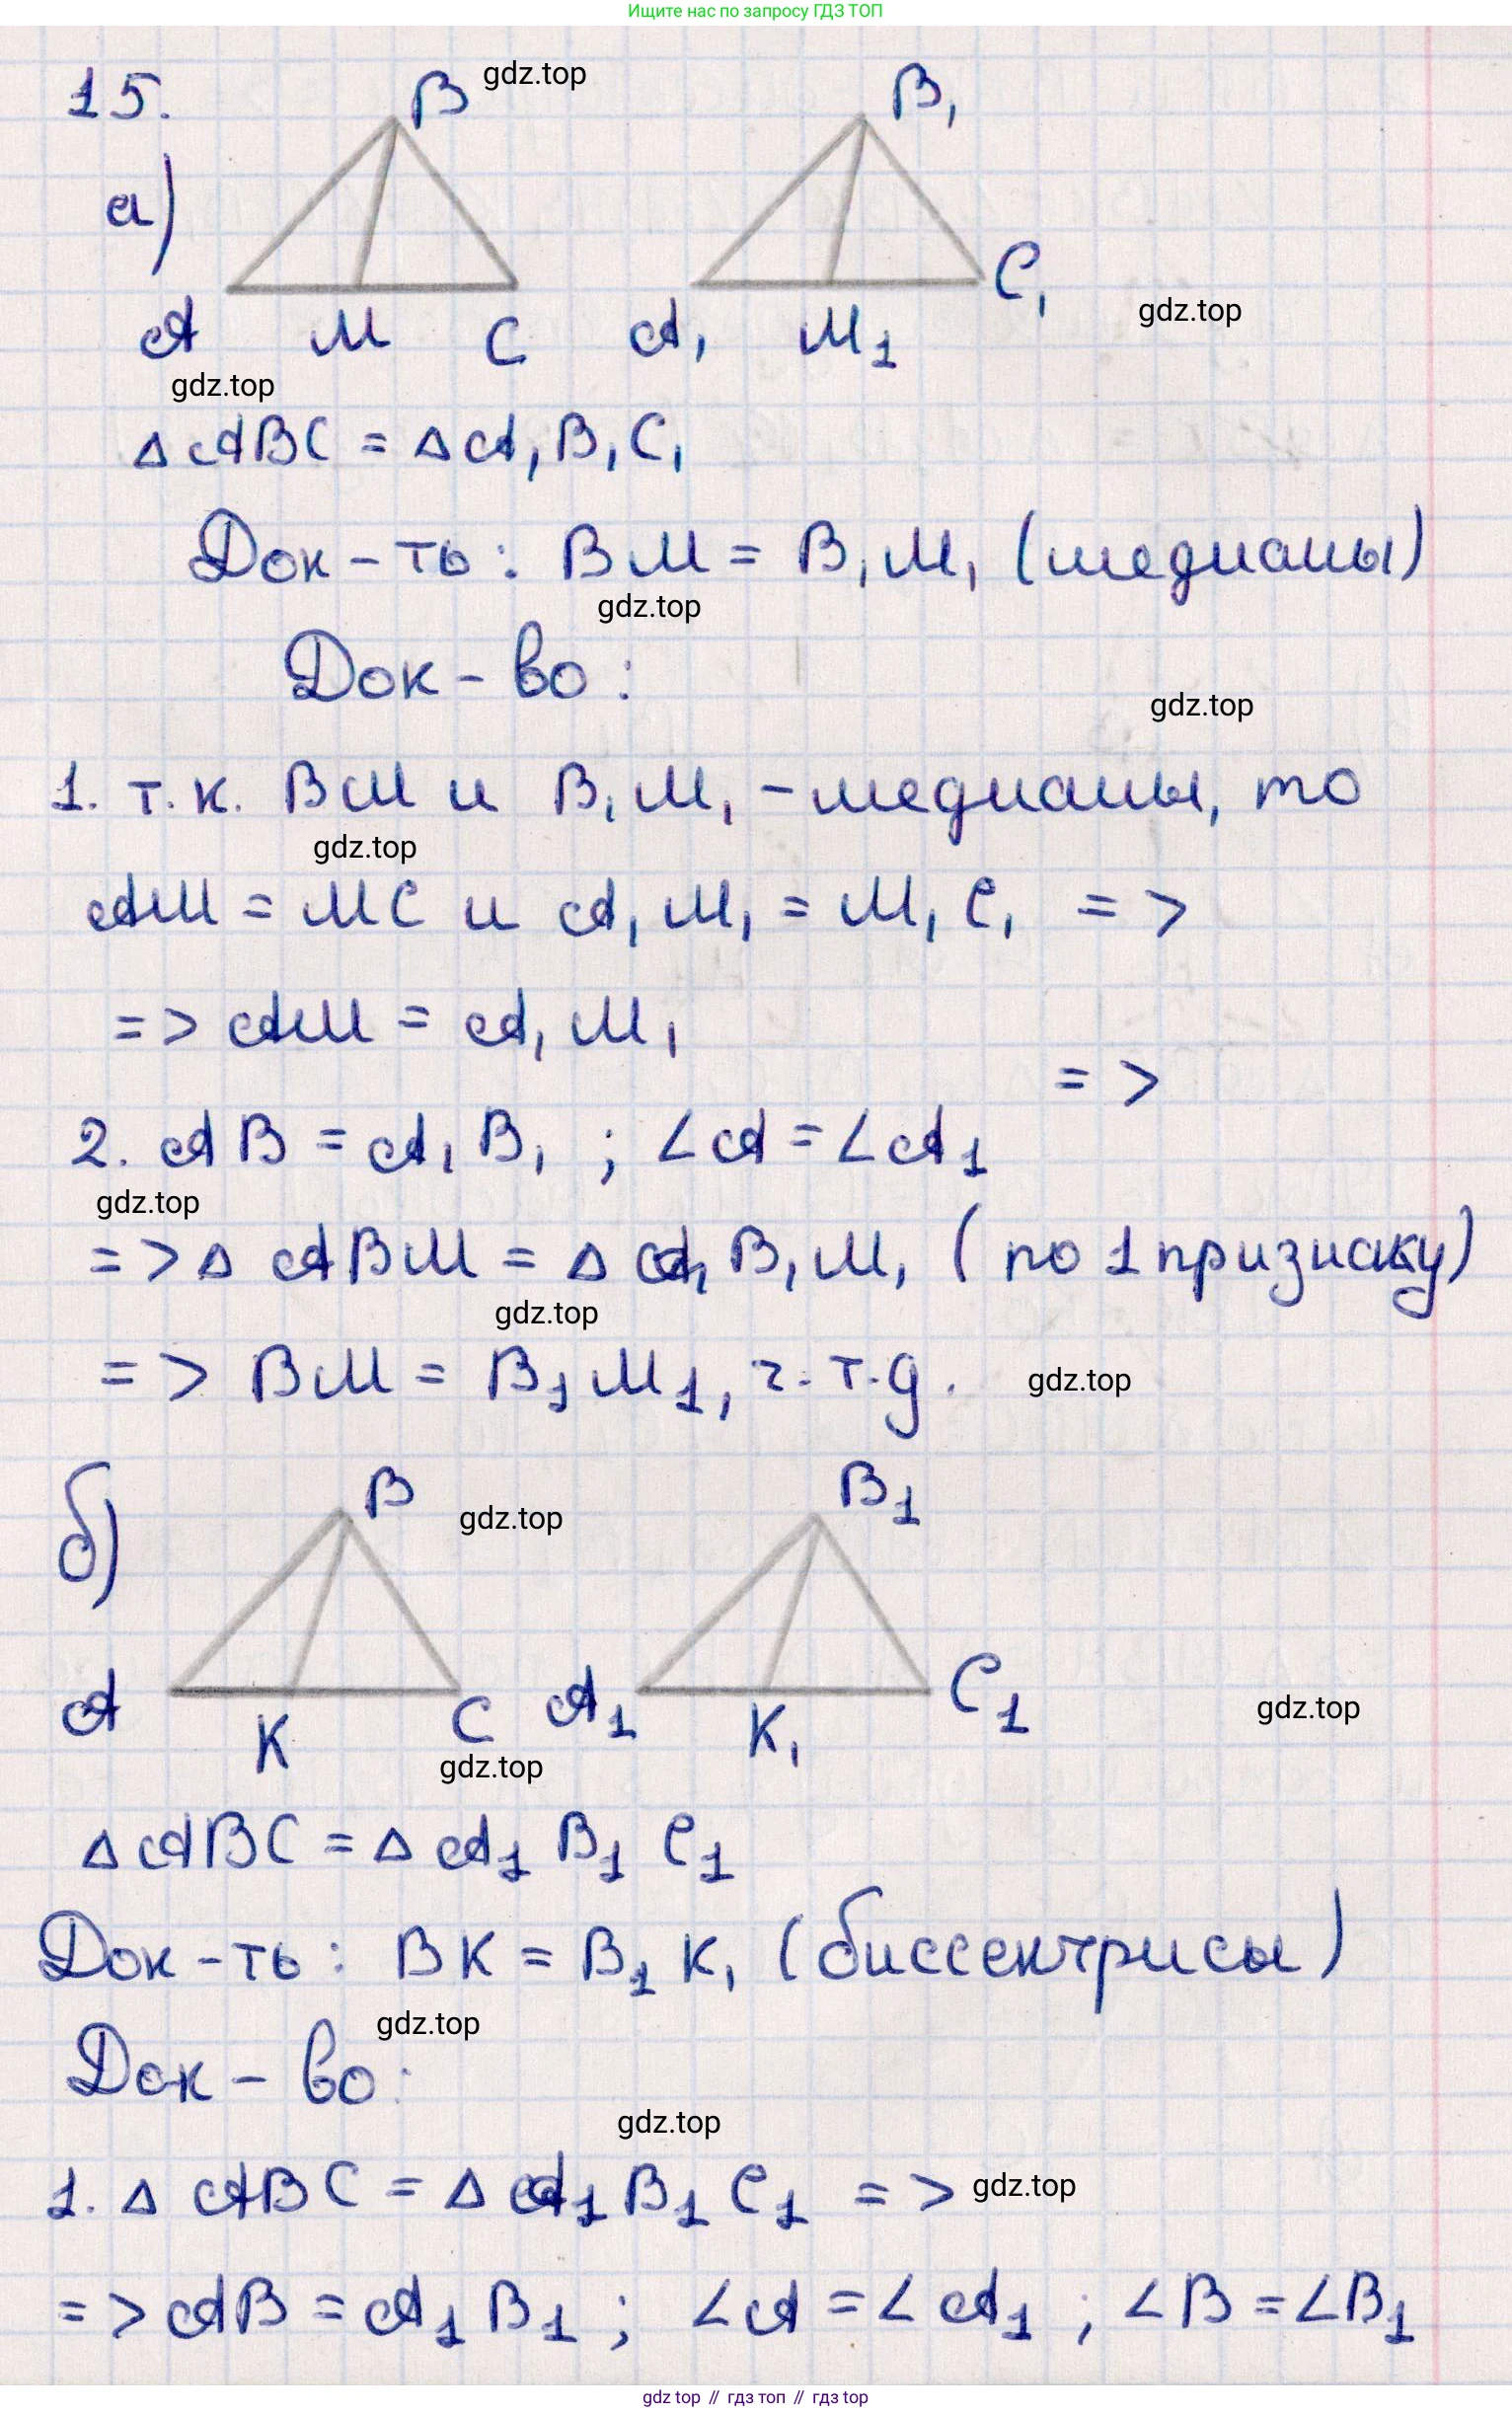 Ищите нас по запросу ГДЗ ТОП
15.
B gdz.top B₁
а)
A M C A₁ M₁ C₁
gdz.top
gdz.top
Δ ABC = Δ A₁B₁C₁
Док-ть: BM = B₁M₁ (медианы)
gdz.top
Док-во:
gdz.top
1. т.к. BM и B₁M₁ - медианы, то
gdz.top
AM = MC и A₁M₁ = M₁C₁ =>
=> AM = A₁M₁
=>
2. AB = A₁B₁ ; ∠A = ∠A₁
gdz.top
=> Δ ABM = Δ A₁B₁M₁ (по 1 признаку)
gdz.top
=> BM = B₁M₁, ч.т.д.
gdz.top
б)
B gdz.top B₁
A K C A₁ K₁ C₁
gdz.top
gdz.top
Δ ABC = Δ A₁B₁C₁
Док-ть: BK = B₁K₁ (биссектрисы)
gdz.top
Док-во:
gdz.top
1. Δ ABC = Δ A₁B₁C₁ =>
gdz.top
=> AB = A₁B₁ ; ∠A = ∠A₁ ; ∠B = ∠B₁
gdz top // гдз топ // гдз top